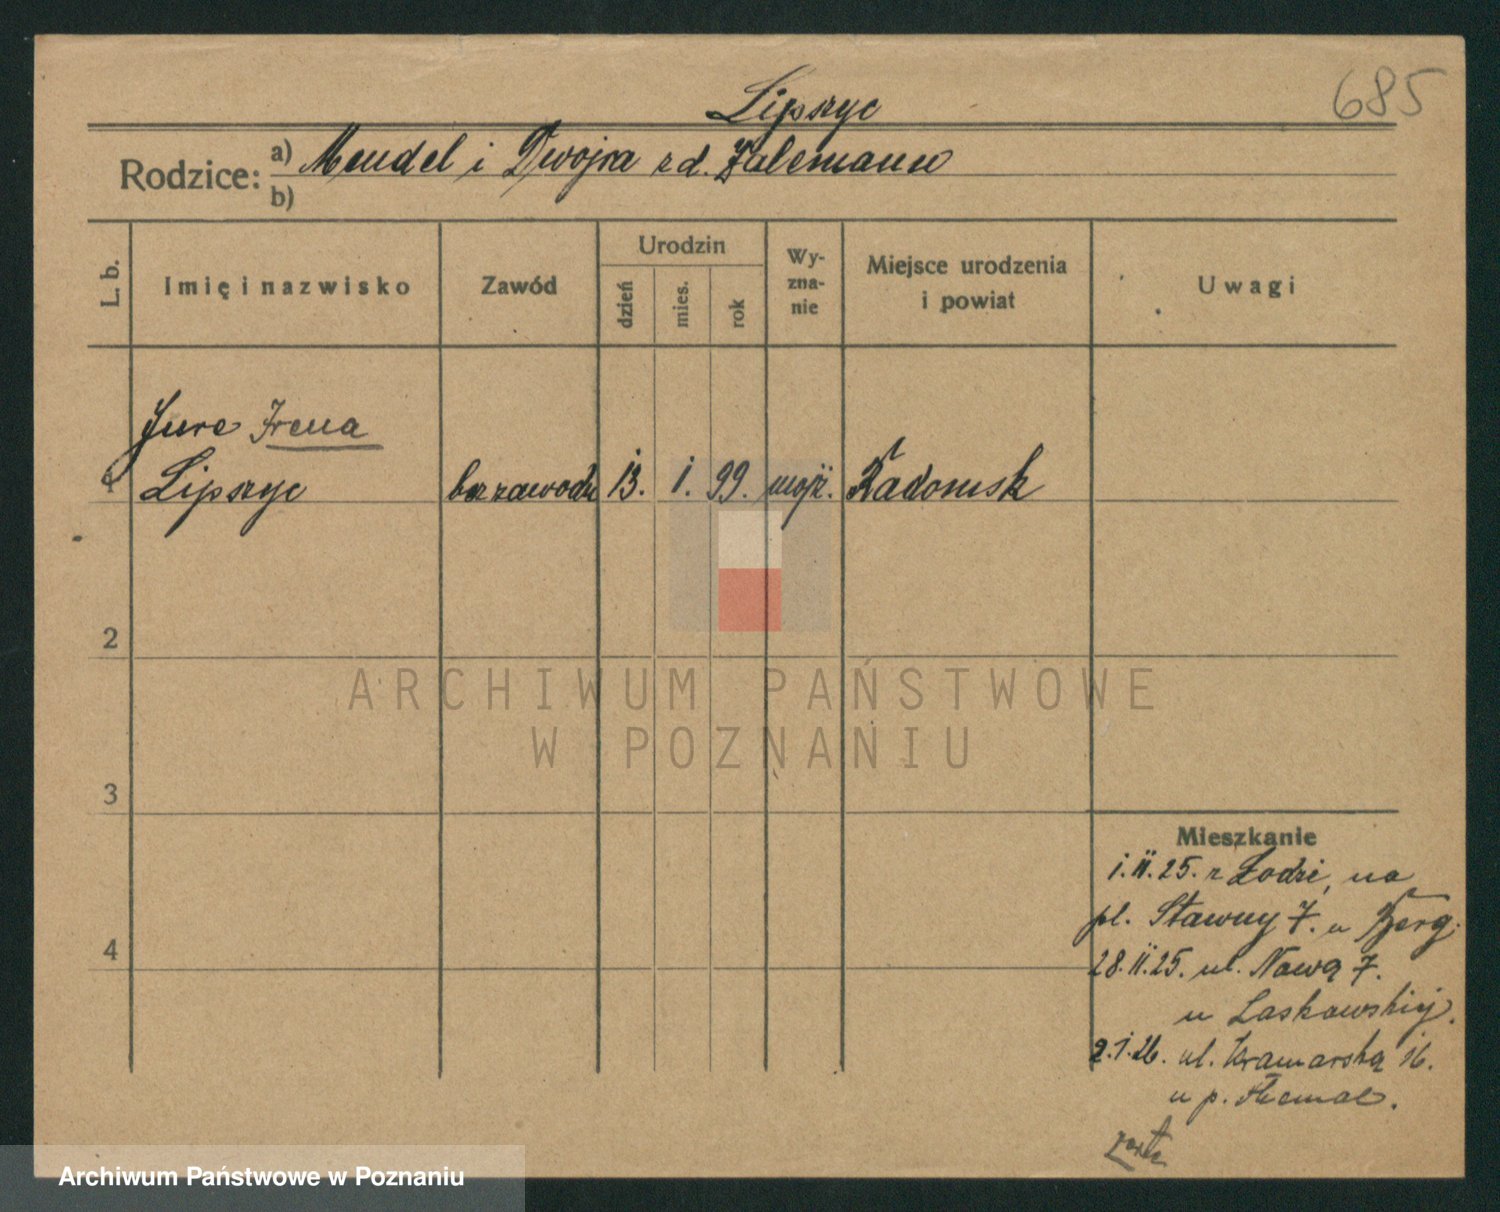 685
Lipszyc
Rodzice: a) Mendel i Dwojra z d. Zalcmann
b)
L. b. Imię i nazwisko Zawód Urodzin dzień mies. rok Wyznanie Miejsce urodzenia i powiat Uwagi
Irena
1 Lipszyc bez zawodu 13. I. 99. mojż. Radomsk
2
3
4
Mieszkanie
1. II. 25. z Łodzi, na
pl. Stawny 7. u Berg.
28. II. 25. ul. Nowa 7.
u Laskowskiej.
2. I. 26. ul. Kramarska 16.
u p.
ARCHIWUM PAŃSTWOWE
W POZNANIU
Archiwum Państwowe w Poznaniu